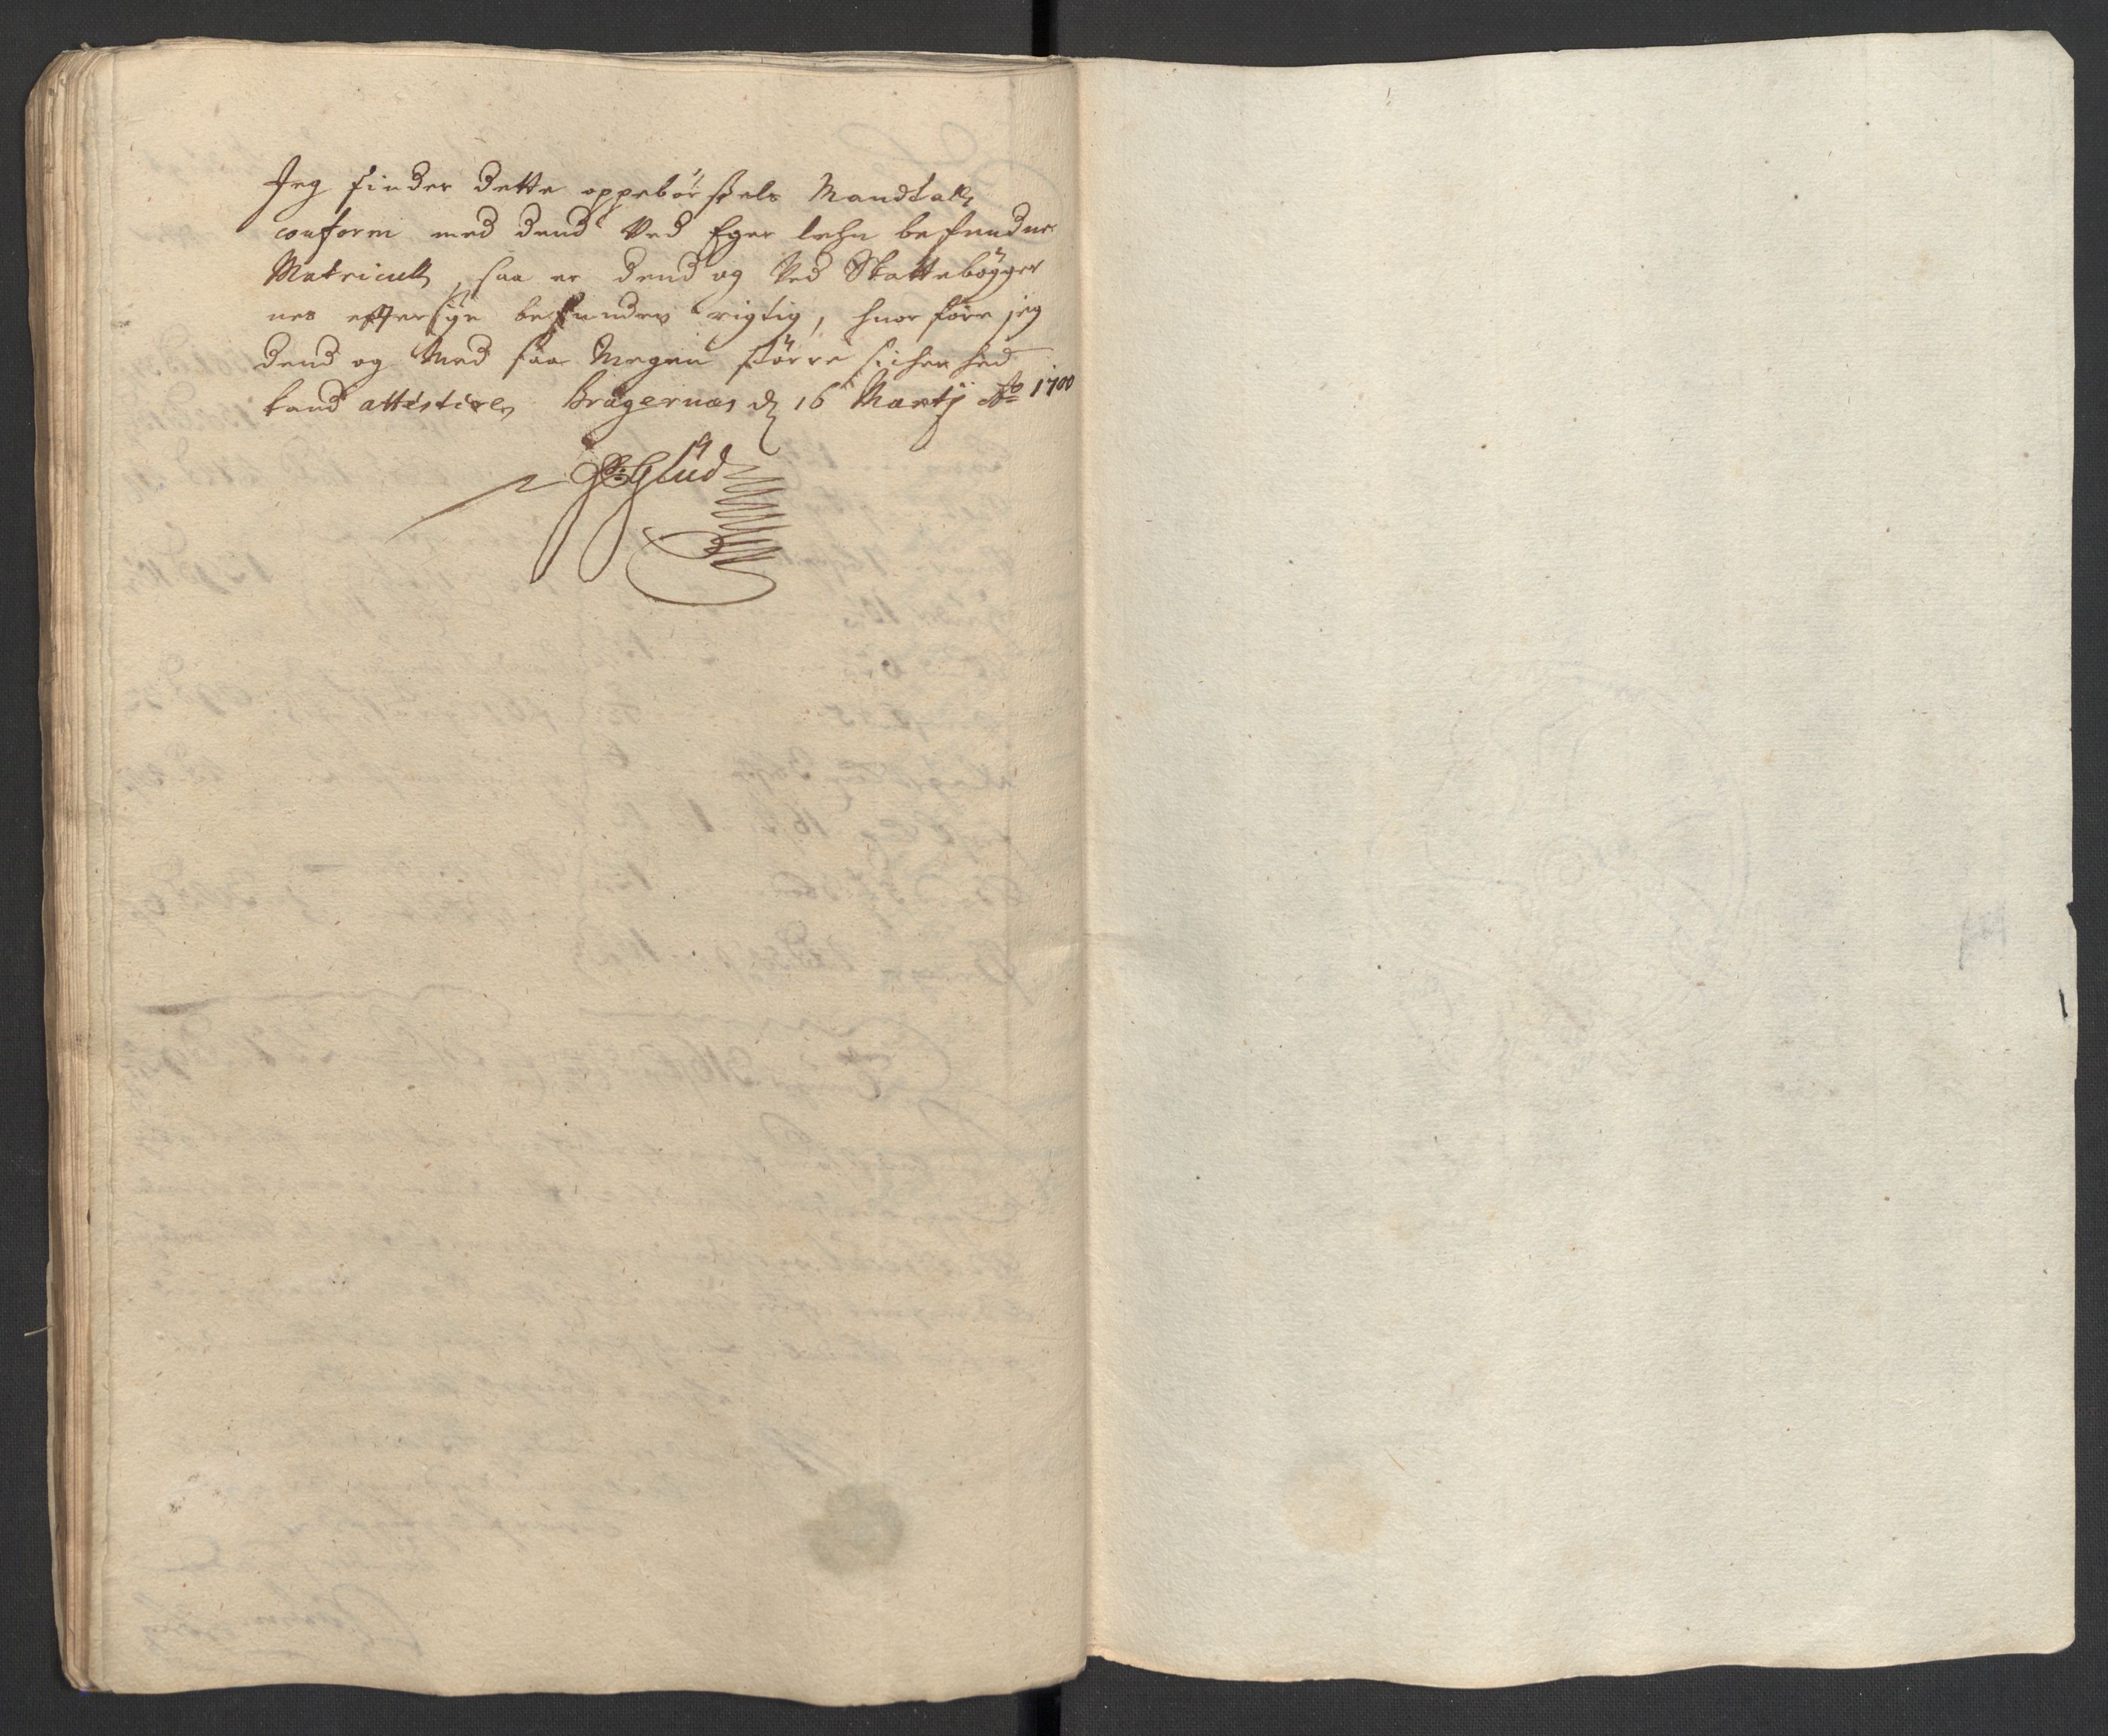 Jeg finder dette oppebørsels Mandtall
conform med dend ved Eger lehn befundne
Matricull, saa er dend og ved Skattebøgger
nes eftersyn befunden rigtig, huorføre jeg
dend og med saa megen større sicherhed
kand attestere, Bragernæs d 16 Martj Ao 1700
Glud